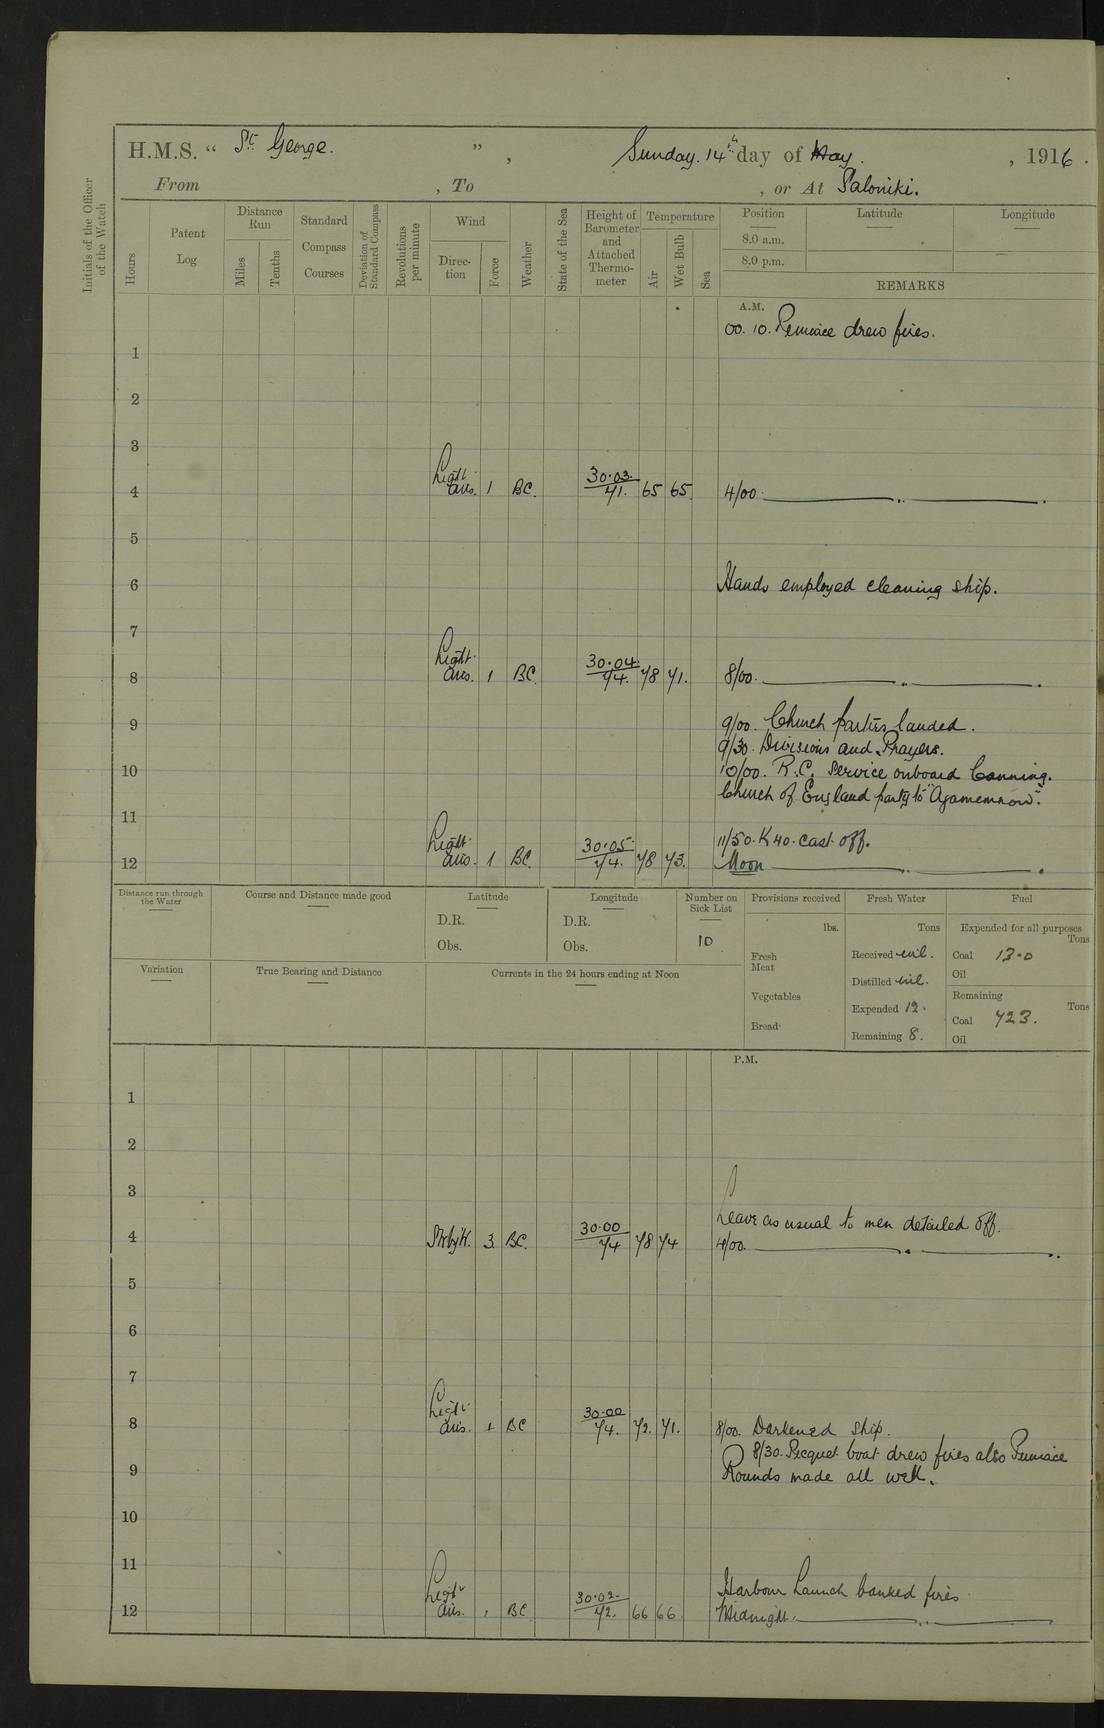 H.M.S. “ St George. ” , Sunday. 14th day of May. , 1916.
From , To , or At Saloniki.
Initials of the Officer of the Watch
Hours
Patent Log
Distance Run
Miles
Tenths
Standard Compass Courses
Deviation of Standard Compass
Revolutions per minute
Wind
Direc-tion
Force
Weather
State of the Sea
Height of Barometer and Attached Thermo-meter
Temperature
Air
Wet Bulb
Sea
Position Latitude Longitude
8.0 a.m.
8.0 p.m.
REMARKS
A.M.
00.10. Pinnace drew fires.
1
2
3
4 Light airs. 1 BC. 30.03. 71. 65 65 4/00.
5
6 Hands employed cleaning ship.
7
8 Light airs. 1 BC. 30.04. 74. 78 71. 8/00.
9 9/00. Church parties landed.
9/30. Divisions and Prayers.
10 10/00. R.C. Service onboard Canning.
Church of England party to "Agamemnon".
11
11/50. K 40. cast off.
12 Light airs. 1 BC. 30.05. 74. 78 73. Noon
Distance run through the Water
Course and Distance made good
Latitude
D.R.
Obs.
Longitude
D.R.
Obs.
Number on Sick List
10
Provisions received
lbs.
Fresh Meat
Vegetables
Bread
Fresh Water
Tons
Received nil.
Distilled nil.
Expended 12.
Remaining 8.
Fuel
Expended for all purposes
Tons
Coal 13.0
Oil
Remaining
Tons
Coal 723.
Oil
Variation
True Bearing and Distance
Currents in the 24 hours ending at Noon
P.M.
1
2
3
Leave as usual to men detailed off.
4 3. BC. 30.00 74 78 74 4/00.
5
6
7
8 Light airs. 1 BC 30.00 74. 72. 71. 8/00. Darkened ship.
8/30. Picquet boat drew fires also Pinnace
9 Rounds made all well.
10
11
Harbour Launch banked fires.
12 Light airs. BC 30.02. 72. 66 66 Midnight.